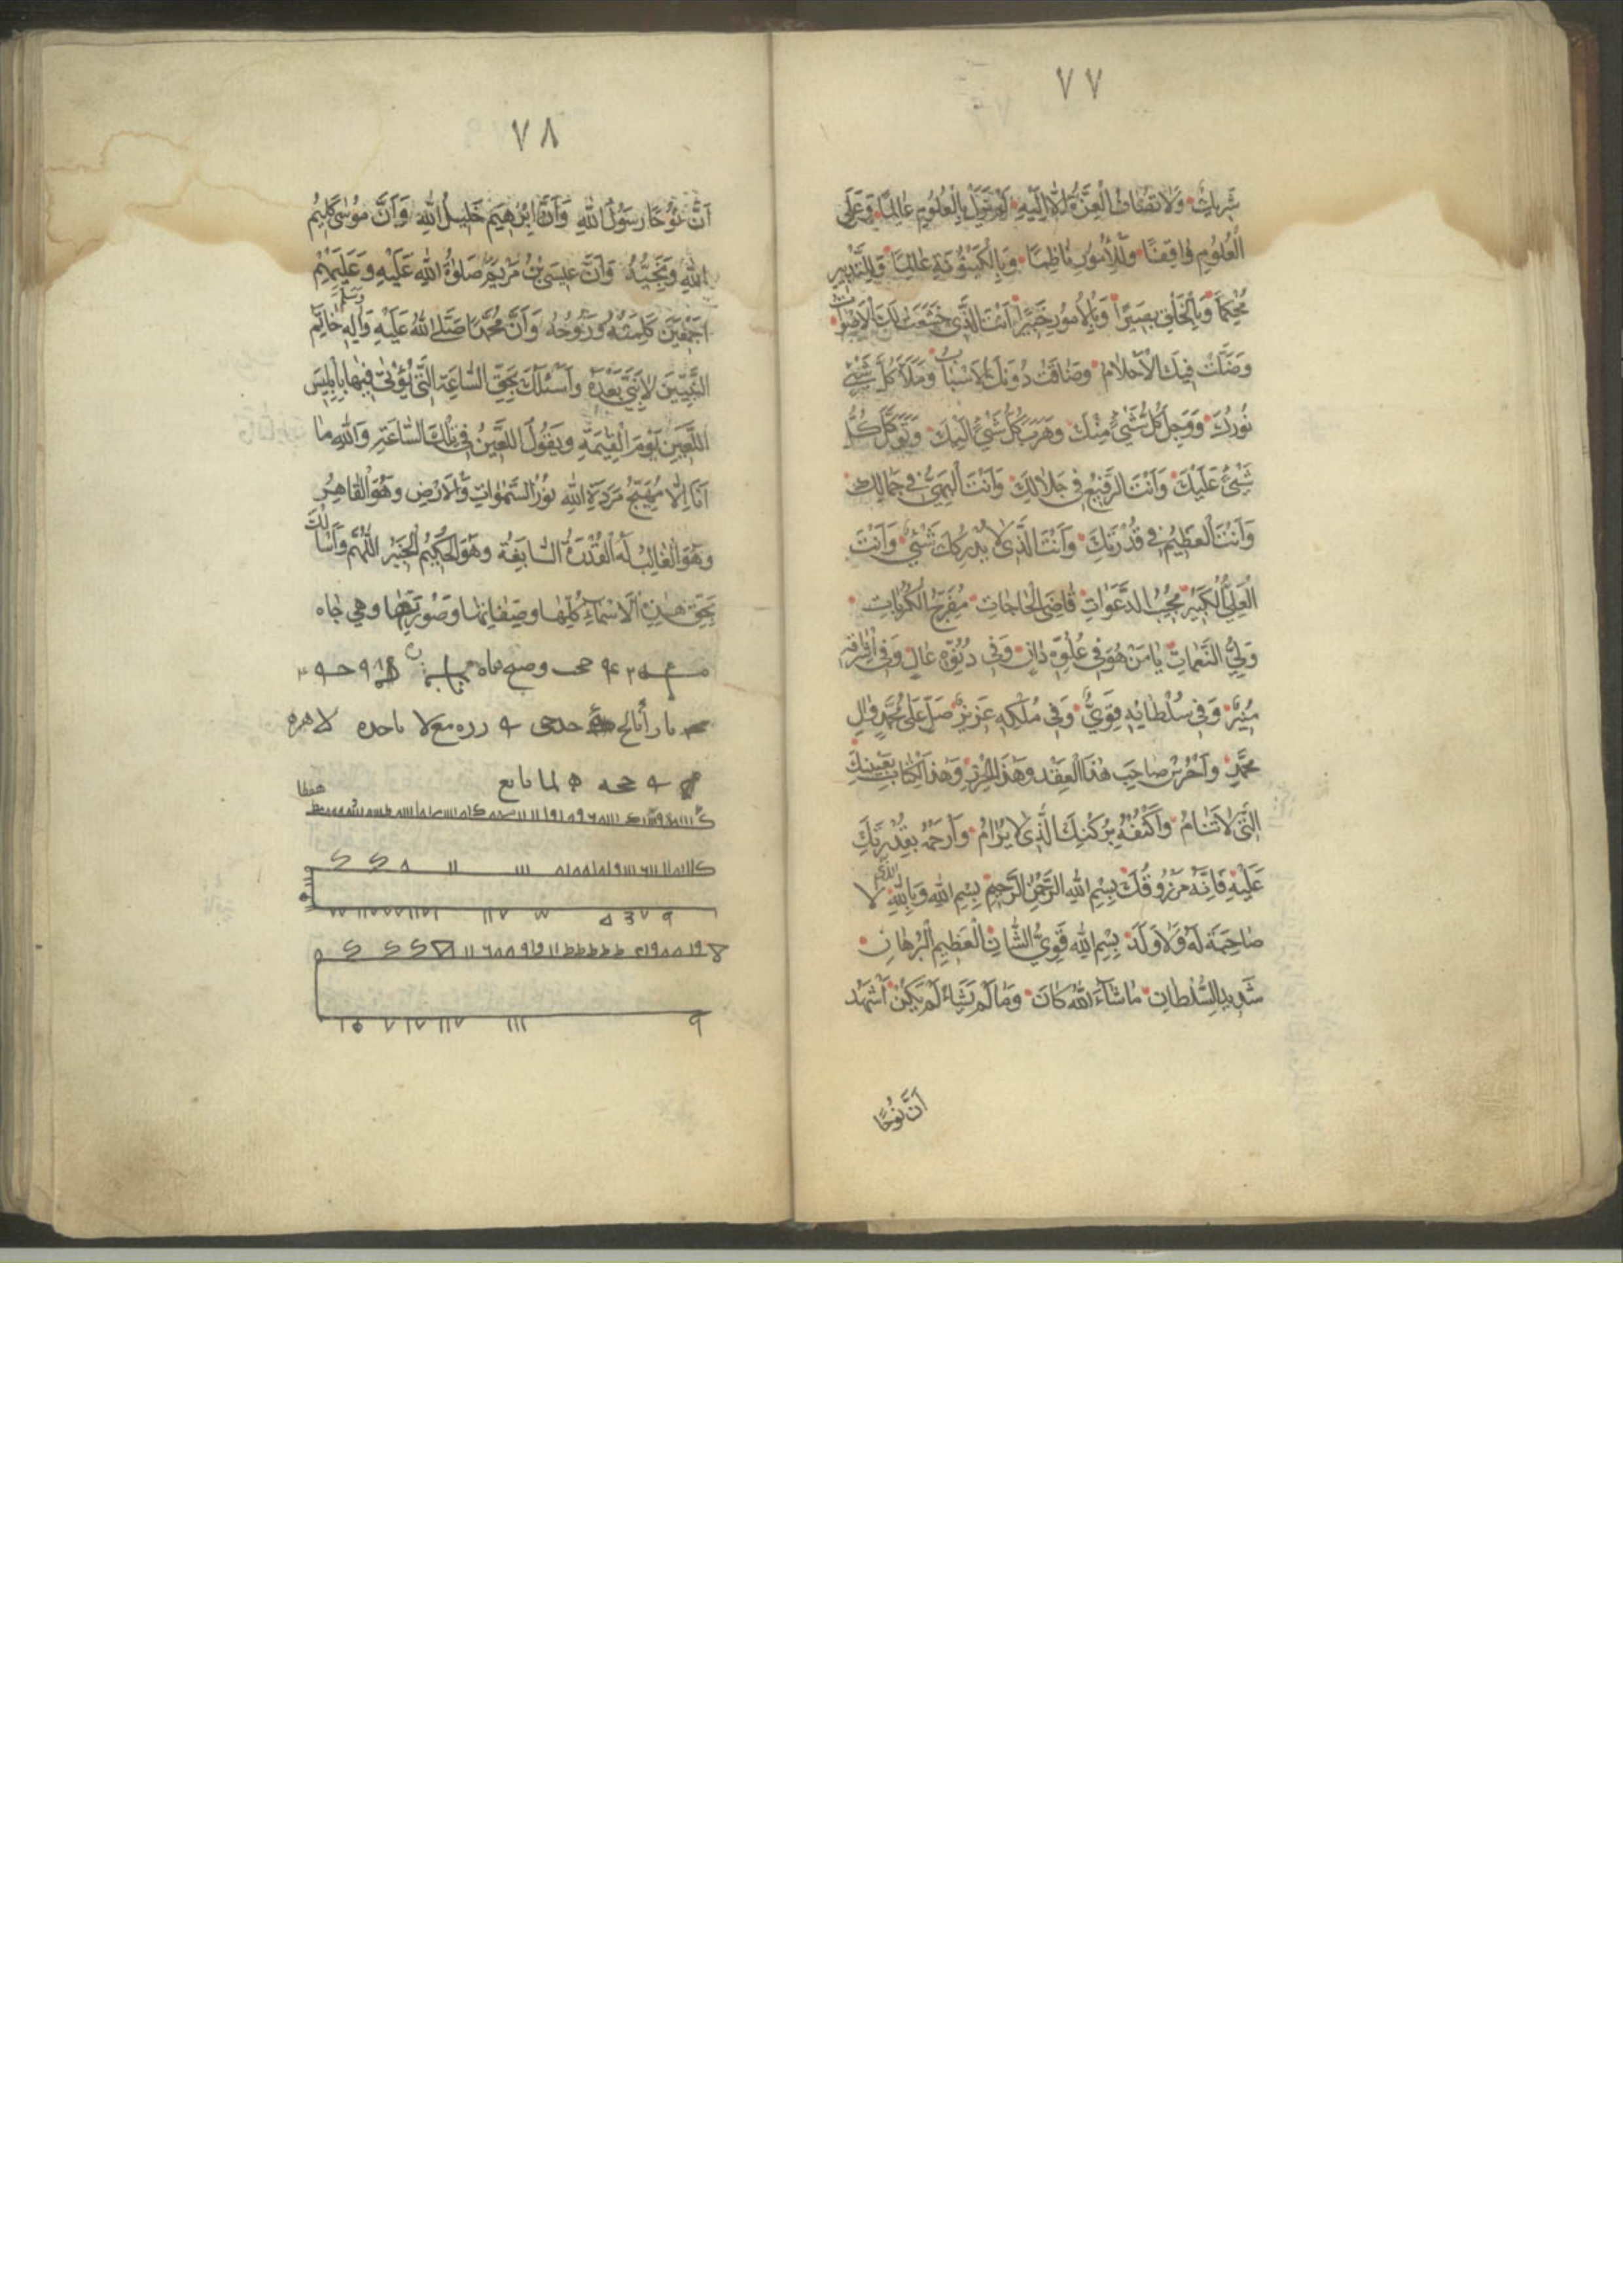 ٧٧
شريك ولا تضاف العزة الا اليه لم تزل بالعلوم عالما وعلى
العلوم واقفا وللأمور ناظما وبالكينونية عالما وللتدبير
محكما وبالخلق بصيرا وبالأمور خبيرا انت الذي خشعت لك الاصوات
وضلت فيك الاحلام وضاقت دونك الاسباب وملأ كل شيئ
نورك ووجل كل شيئ منك وهرب كل شيئ اليك وتوكل كل
شيئ عليك وانت الرفيع في جلالك وانت البهي في جمالك
وانت العظيم في قدرتك وانت الذي لا يدركك شيئ وانت
العلي الكبير مجيب الدعوات قاضي الحاجات مفرج الكربات
ولي النعمات يا من هو في علوه دان وفي دنوه عال وفي اشراقه
منير وفي سلطانه قوي وفي ملكه عزيز صل على محمد وال
محمد واحرس صاحب هذا العقد وهذا الحرز وهذا الكتاب بعينك
التي لا تنام واكنفه بركنك الذي لا يرام وارحمه بقدرتك
عليه فانه مرزوقك بسم الله الرحمن الرحيم بسم الله وبالله الذي لا
صاحبة له ولا ولد بسم الله قوي الشان العظيم البرهان
شديد السلطان ما شاء الله كان وما لم يشاء لم يكن اشهد
ان نوحا
٧٨
ان نوحا رسول الله وان ابرهيم خليل الله وان موسى كليم
الله ونجيه وان عيسى بن مريم صلوة الله عليه وعليهم
اجمعين كلمته وروحه وان محمدا صلى الله عليه واله وسلم خاتم
النبيين لا نبي بعده واسئلك بحق الساعة التي يؤتى فيها بابليس
اللعين يوم القيمة ويقول اللعين في تلك الساعة والله ما
انا الا مهيج مردة الله نور السموات والارض وهو القاهر
وهو الغالب له القدرة السابغة وهو الحكيم الخبير اللهم واسألك
بحق هذه الاسماء كلها وصفاتها وصورتها وهي جاه